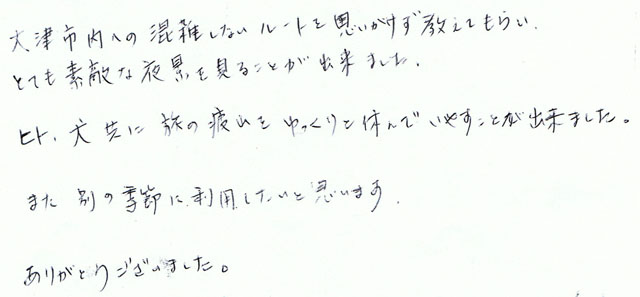 大津市内への混雑しないルートを思いがけず教えてもらい、
とても素敵な夜景を見ることが出来ました。
ヒト、犬共に旅の疲れをゆっくりと休んでいやすことが出来ました。
また別の季節に利用したいと思います。
ありがとうございました。